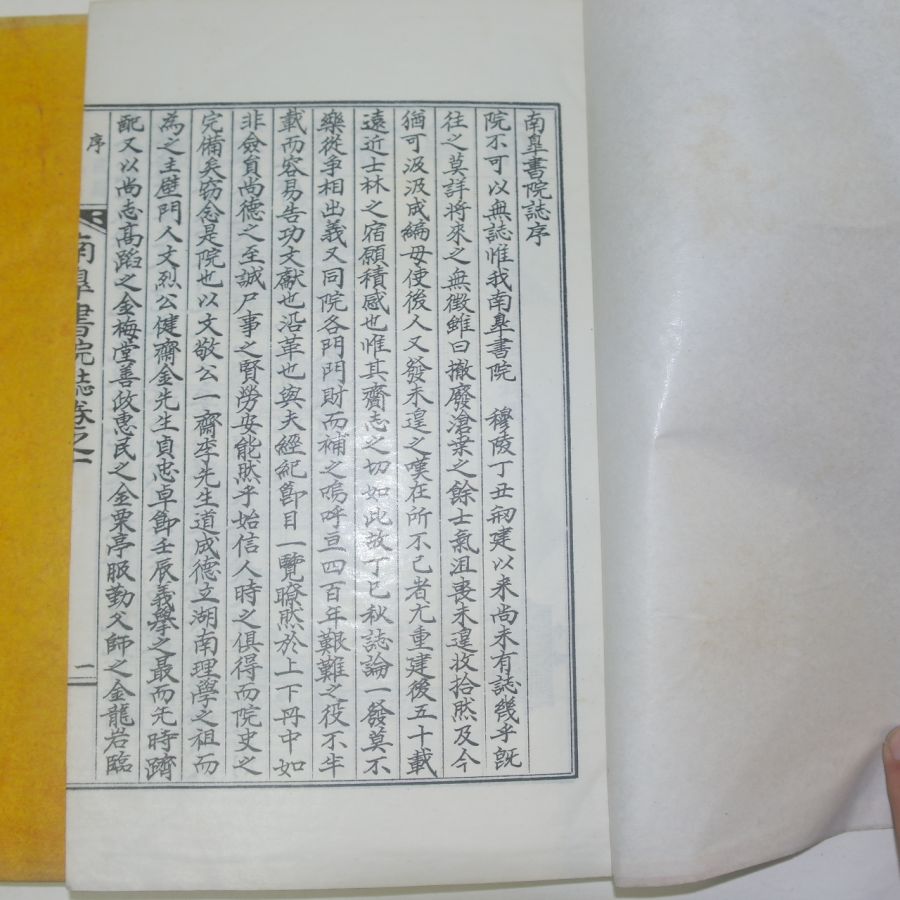 南臯書院誌序
院不可以無誌惟我南臯書院　穆陵丁丑刱建以来尚未有誌幾乎旣
往之莫詳将來之無徴雖曰撤廢滄桒之餘士氣沮丧未遑收拾然及今
猶可汲汲成編毋使後人又發未遑之嘆在所不已者尤重建後五十載
遠近士林之宿願積感也惟其齋志之切如此故丁巳秋誌論一發莫不
樂從爭相出義又同院各門門財而補之嗚呼亘四百年艱難之役不半
載而容易告功文獻也沿革也與夫經紀節目一覽瞭然於上下冊中如
非僉員尚德之至誠尸事之賢勞安能然乎始信人時之俱得而院史之
完備矣窃念是院也以文敬公一齋李先生道成德立湖南理學之祖而
為之主壁門人文烈公健齋金先生貞忠卓節壬辰義擧之最而旡時躋
配又以尚志高蹈之金梅堂善政惠民之金栗亭服勤父師之金龍岩臨
序
南臯書院誌卷之一
一